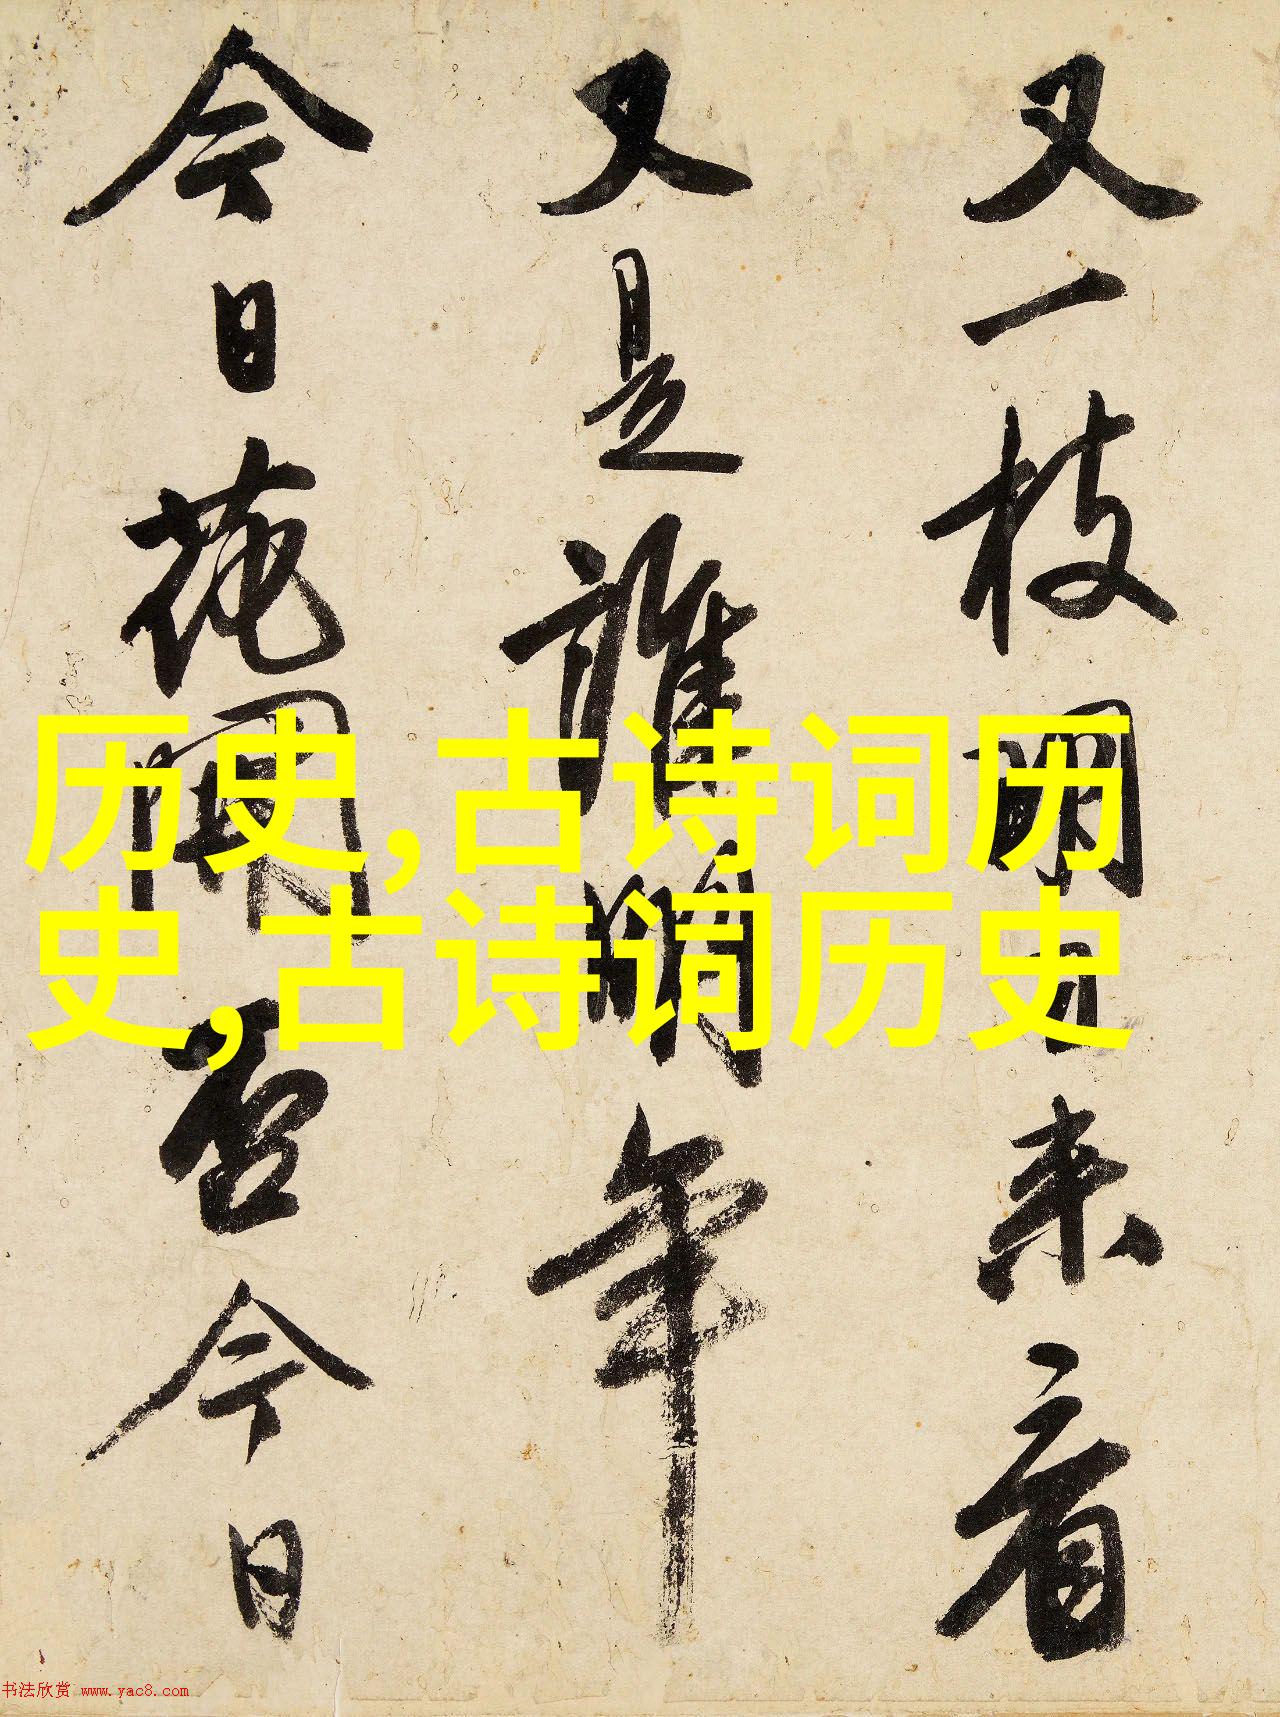 又一枝明日来看
又是誰明年
今日花開否今日
历史,古诗词历
史,古诗词历史
书法欣赏 www.yac8.com